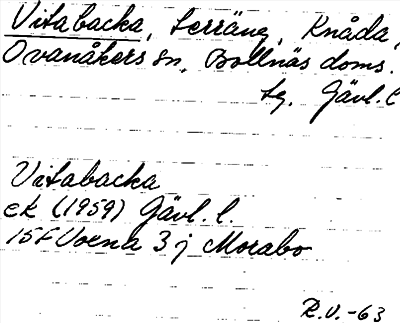 Vitabacka, terräng, Knåda,
Ovanåkers sn, Bollnäs doms.
tg. Gävl. l
Vitabacka
ek (1959) Gävl. l.
15F Voxna 3 j Morabo
R.V. -63